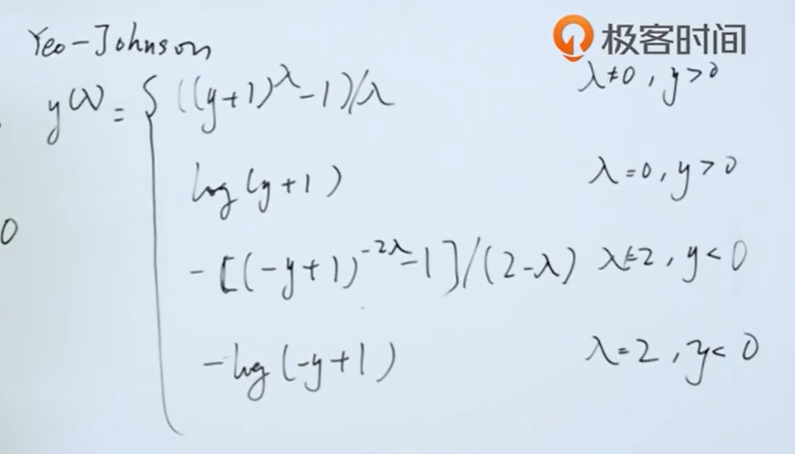 Yeo-Johnson
极客时间
y(λ) = { ((y+1)^λ - 1)/λ λ≠0, y>0
log(y+1) λ=0, y>0
0
-[(-y+1)^-2λ - 1]/(2-λ) λ≠2, y<0
-log(-y+1) λ=2, y<0